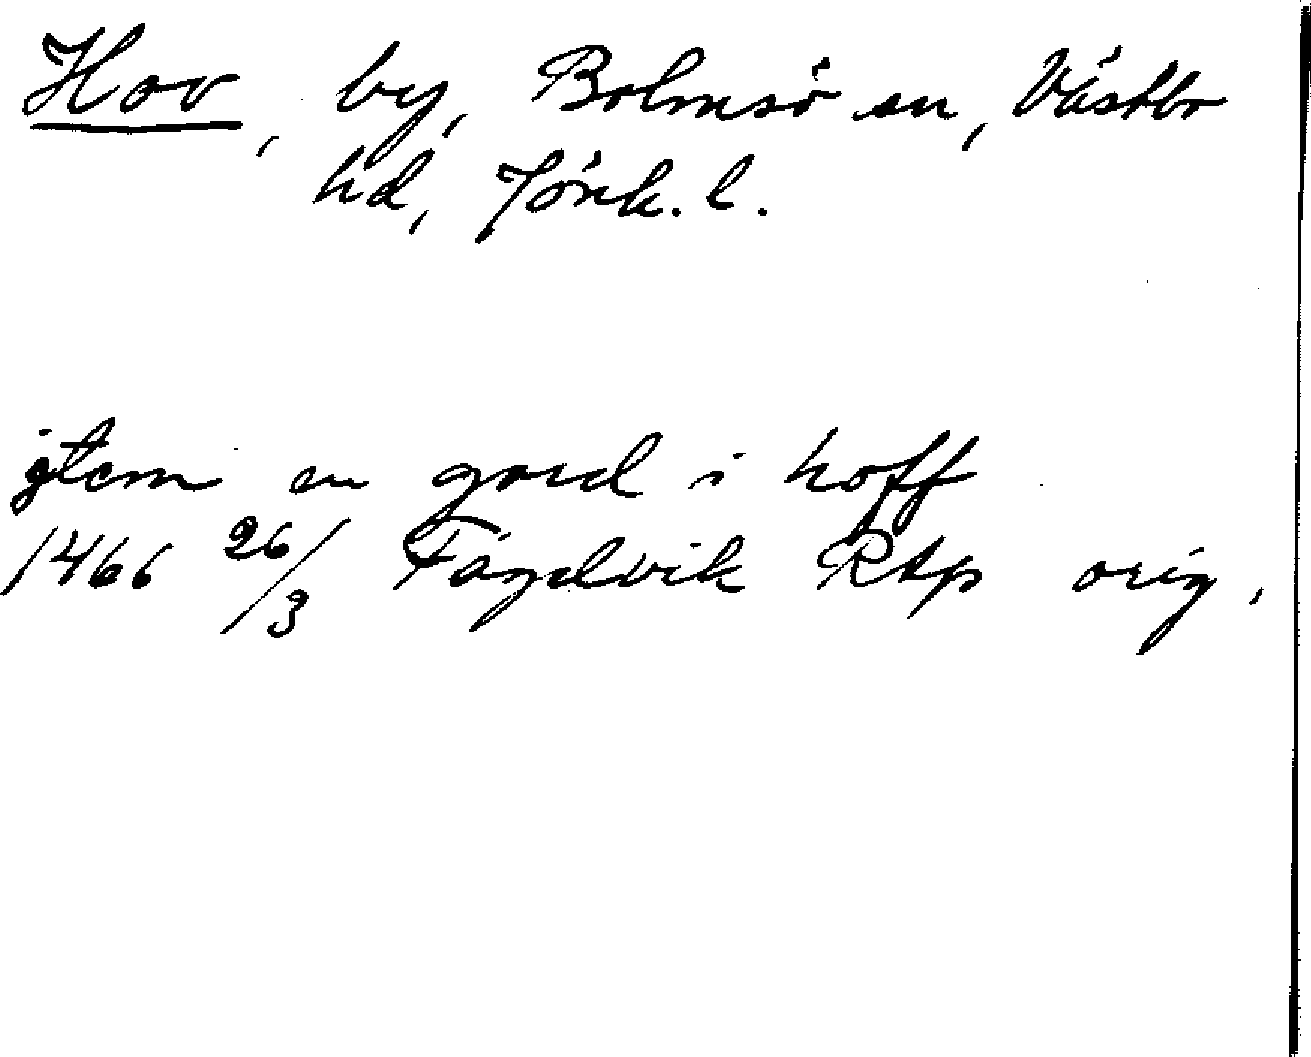 Hov, by, Bolmsö sn, Västbo
hd, Jönk. l.
jtem en gard i hoff
1466 26/3 Fågelvik RAp orig.